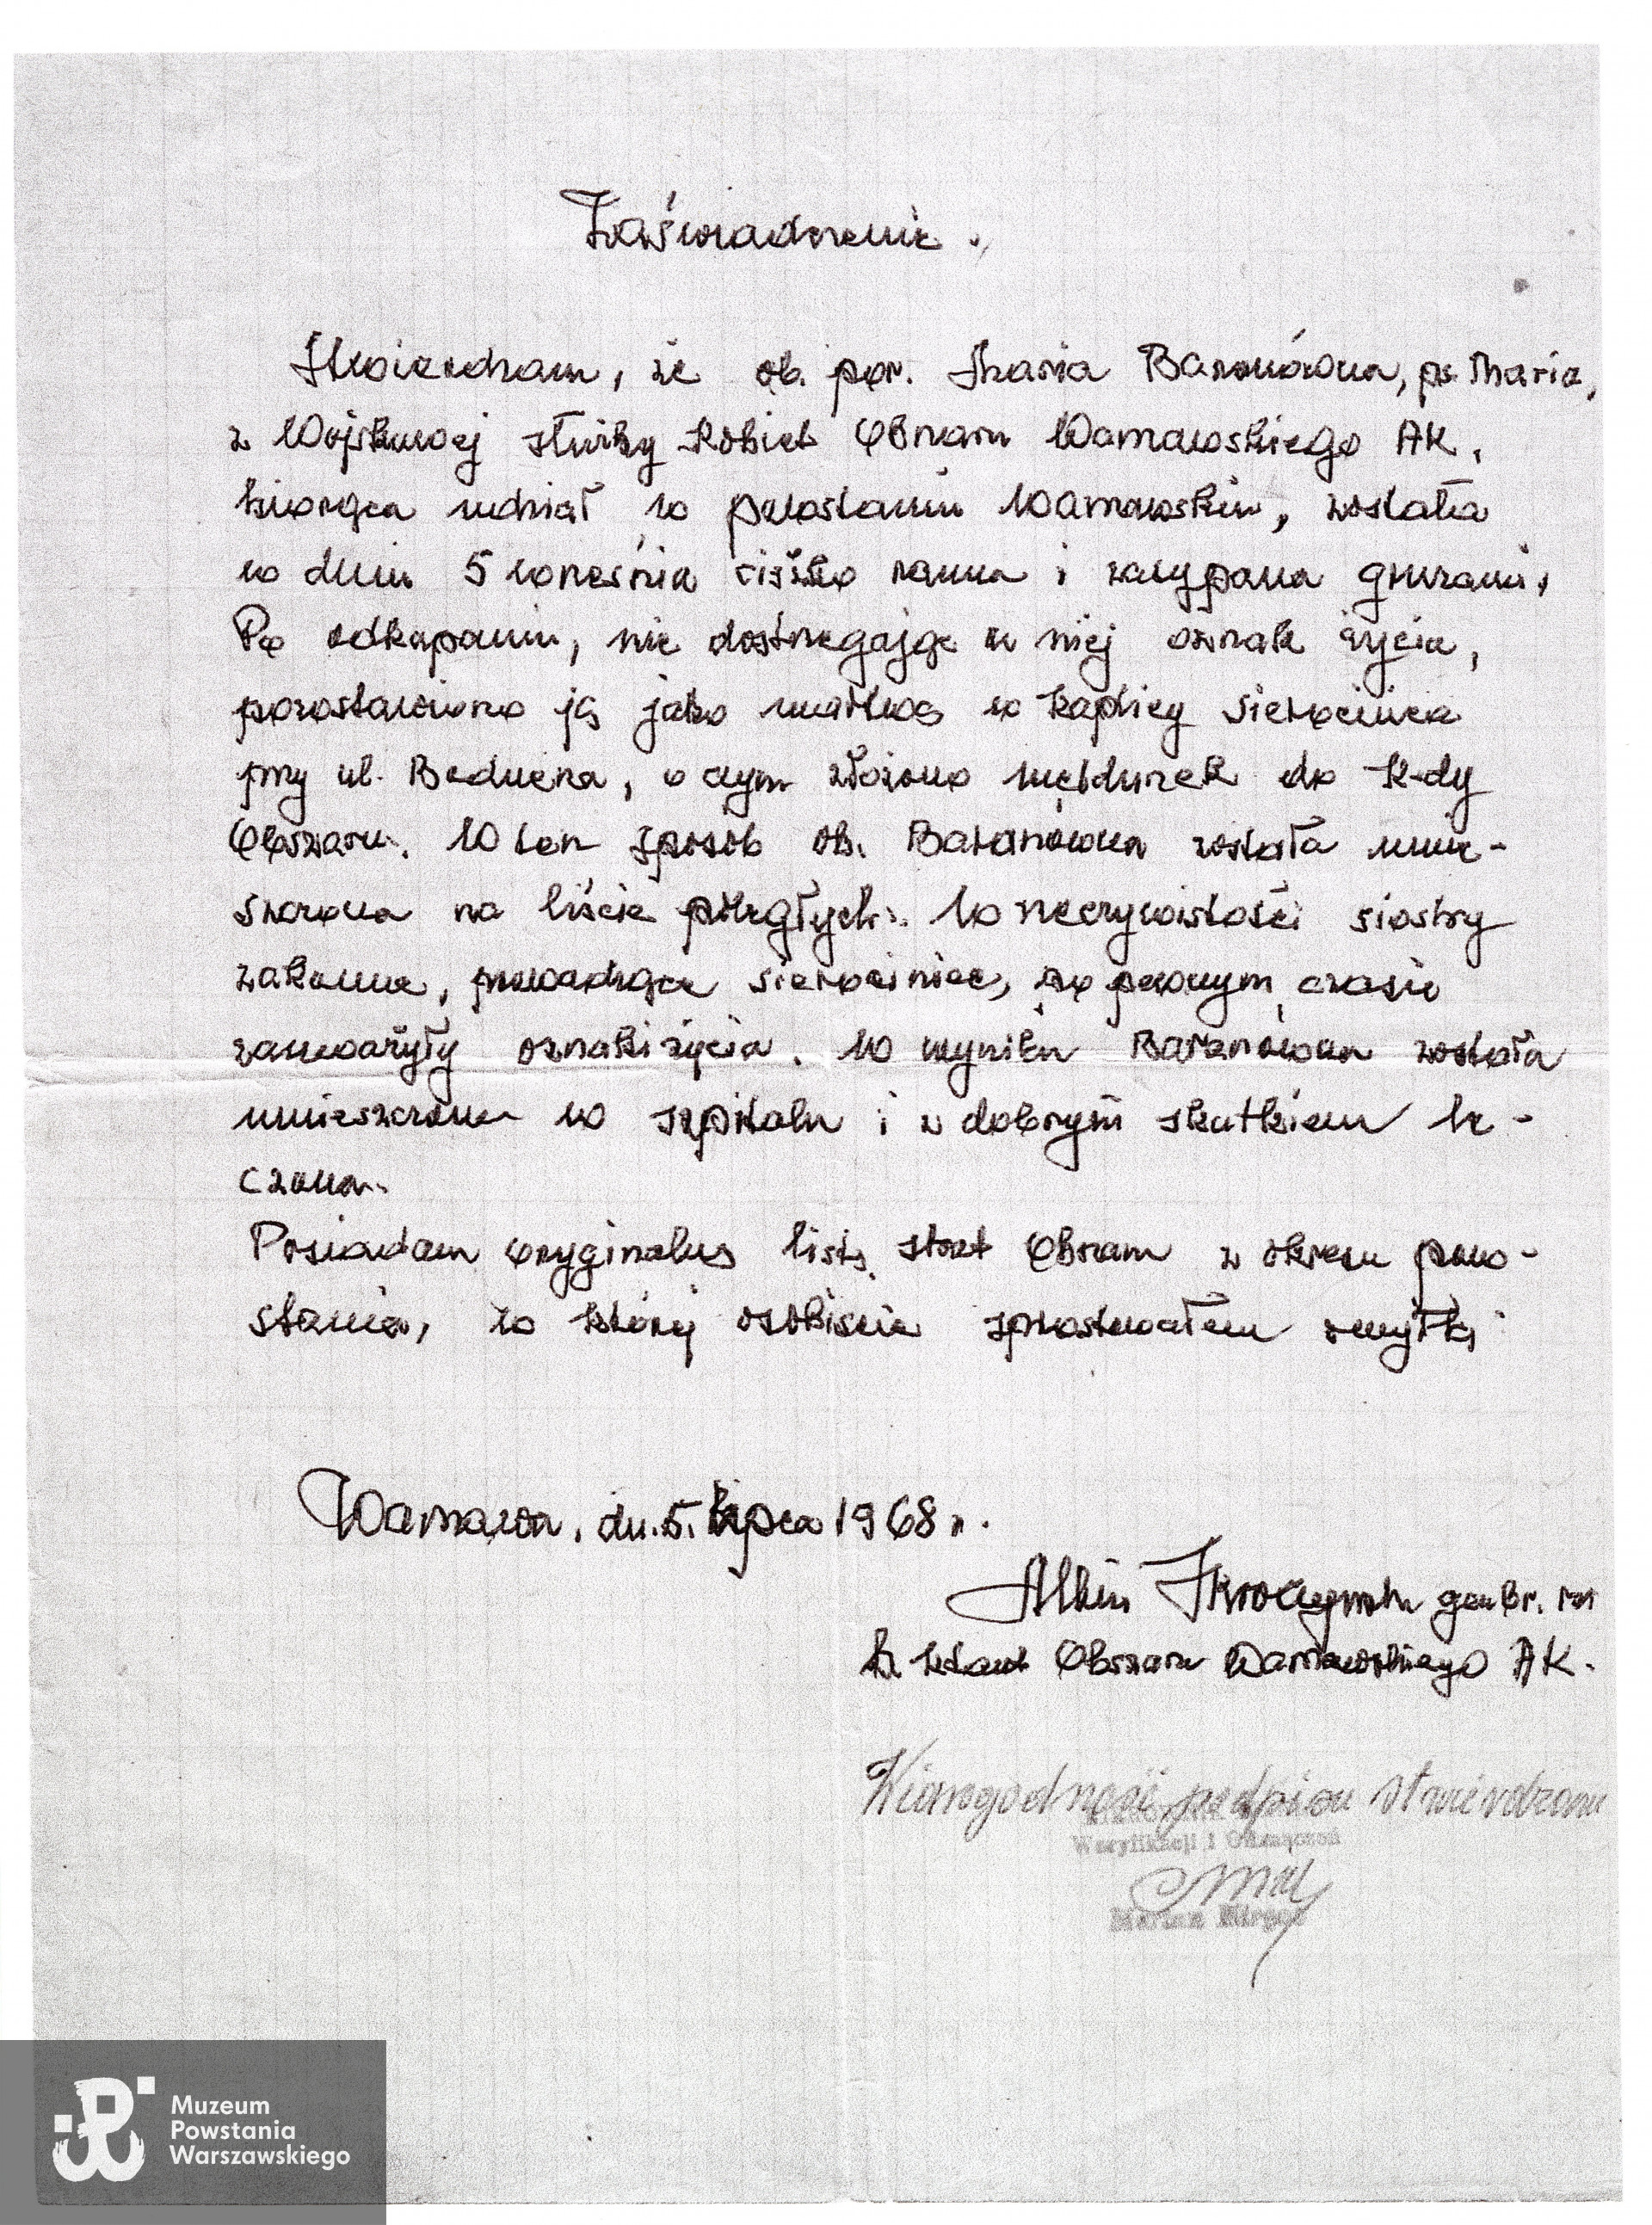 Zaświadczenie.
Stwierdzam, że ob. por. Maria Baranówna, ps. Maria,
z Wojskowej służby Kobiet Obszaru Warszawskiego AK,
biorąca udział w powstaniu Warszawskim, została
w dniu 5 września ciężko ranna i zasypana gruzami,
Po odkopaniu, nie dostrzegając w niej oznak życia,
pozostawiono ją jako martwą w kaplicy sierocińca
przy ul. Bednarska, o czym złożono meldunek do K-dy
Obszaru. W ten sposób ob. Baranówna została umie-
szczona na liście poległych. W rzeczywistości siostry
zakonne, prowadzące sierociniec, po pewnym czasie
zauważyły oznaki życia. W wyniku Baranówna została
umieszczona w szpitalu i z dobrym skutkiem le-
czona.
Posiadam oryginalną listę strat Obszaru z okresu pow-
stania, w której osobiście sprostowałem zmyłkę
Warszawa, dn. 5. lipca 1968 r.
Albin Skroczyński gen br.
b. Kdant Obszaru Warszawskiego AK.
Wiarogodność podpisu stwierdzam
Weryfikacji i Odznaczeń
Marian
Muzeum
Powstania
Warszawskiego